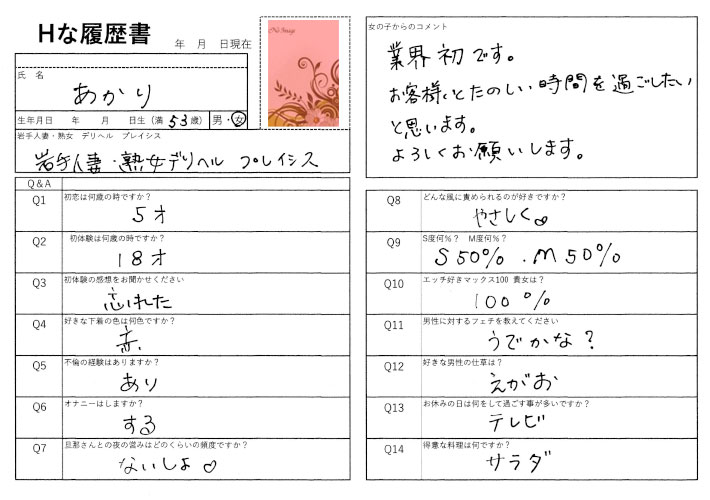 Hな履歴書
年 月 日現在
No Image
氏 名
あかり
生年月日 年 月 日生 (満 53 歳) 男・女
岩手人妻・熟女 デリヘル プレイシス
岩手人妻・熟女デリヘル プレイシス
Q&A
Q1 初恋は何歳の時ですか?
5才
Q2 初体験は何歳の時ですか?
18才
Q3 初体験の感想をお聞かせください
忘れた
Q4 好きな下着の色は何色ですか?
赤
Q5 不倫の経験はありますか?
あり
Q6 オナニーはしますか?
する
Q7 旦那さんとの夜の営みはどのくらいの頻度ですか?
ないしょ♡
女の子からのコメント
業界初です。
お客様とたのしい時間を過ごしたい
と思います。
よろしくお願いします。
Q8 どんな風に責められるのが好きですか?
やさしく♡
Q9 S度何%? M度何%?
S50%.M50%
Q10 エッチ好きマックス100 貴女は?
100%
Q11 男性に対するフェチを教えてください
うでかな?
Q12 好きな男性の仕草は?
えがお
Q13 お休みの日は何をして過ごす事が多いですか?
テレビ
Q14 得意な料理は何ですか?
サラダ